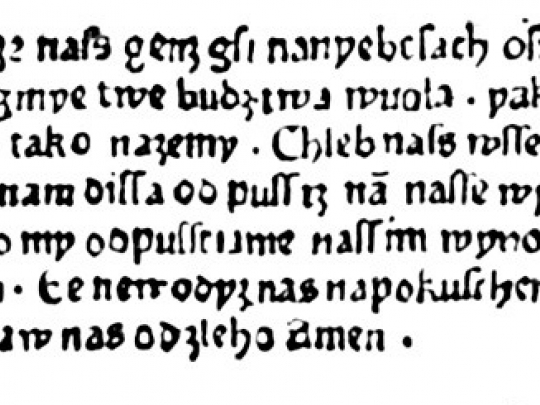 naſs genz gſi nanyebeſach
zmye twe budz twa wuola . pak
tako nazemy . Chleb naſs wſſe
nam diſſa od puſſtz nā naſſe wy
o my odpuſſtiame naſſim wyno
. te newodyz nas napokuſchen
aw nas odzleho Amen .